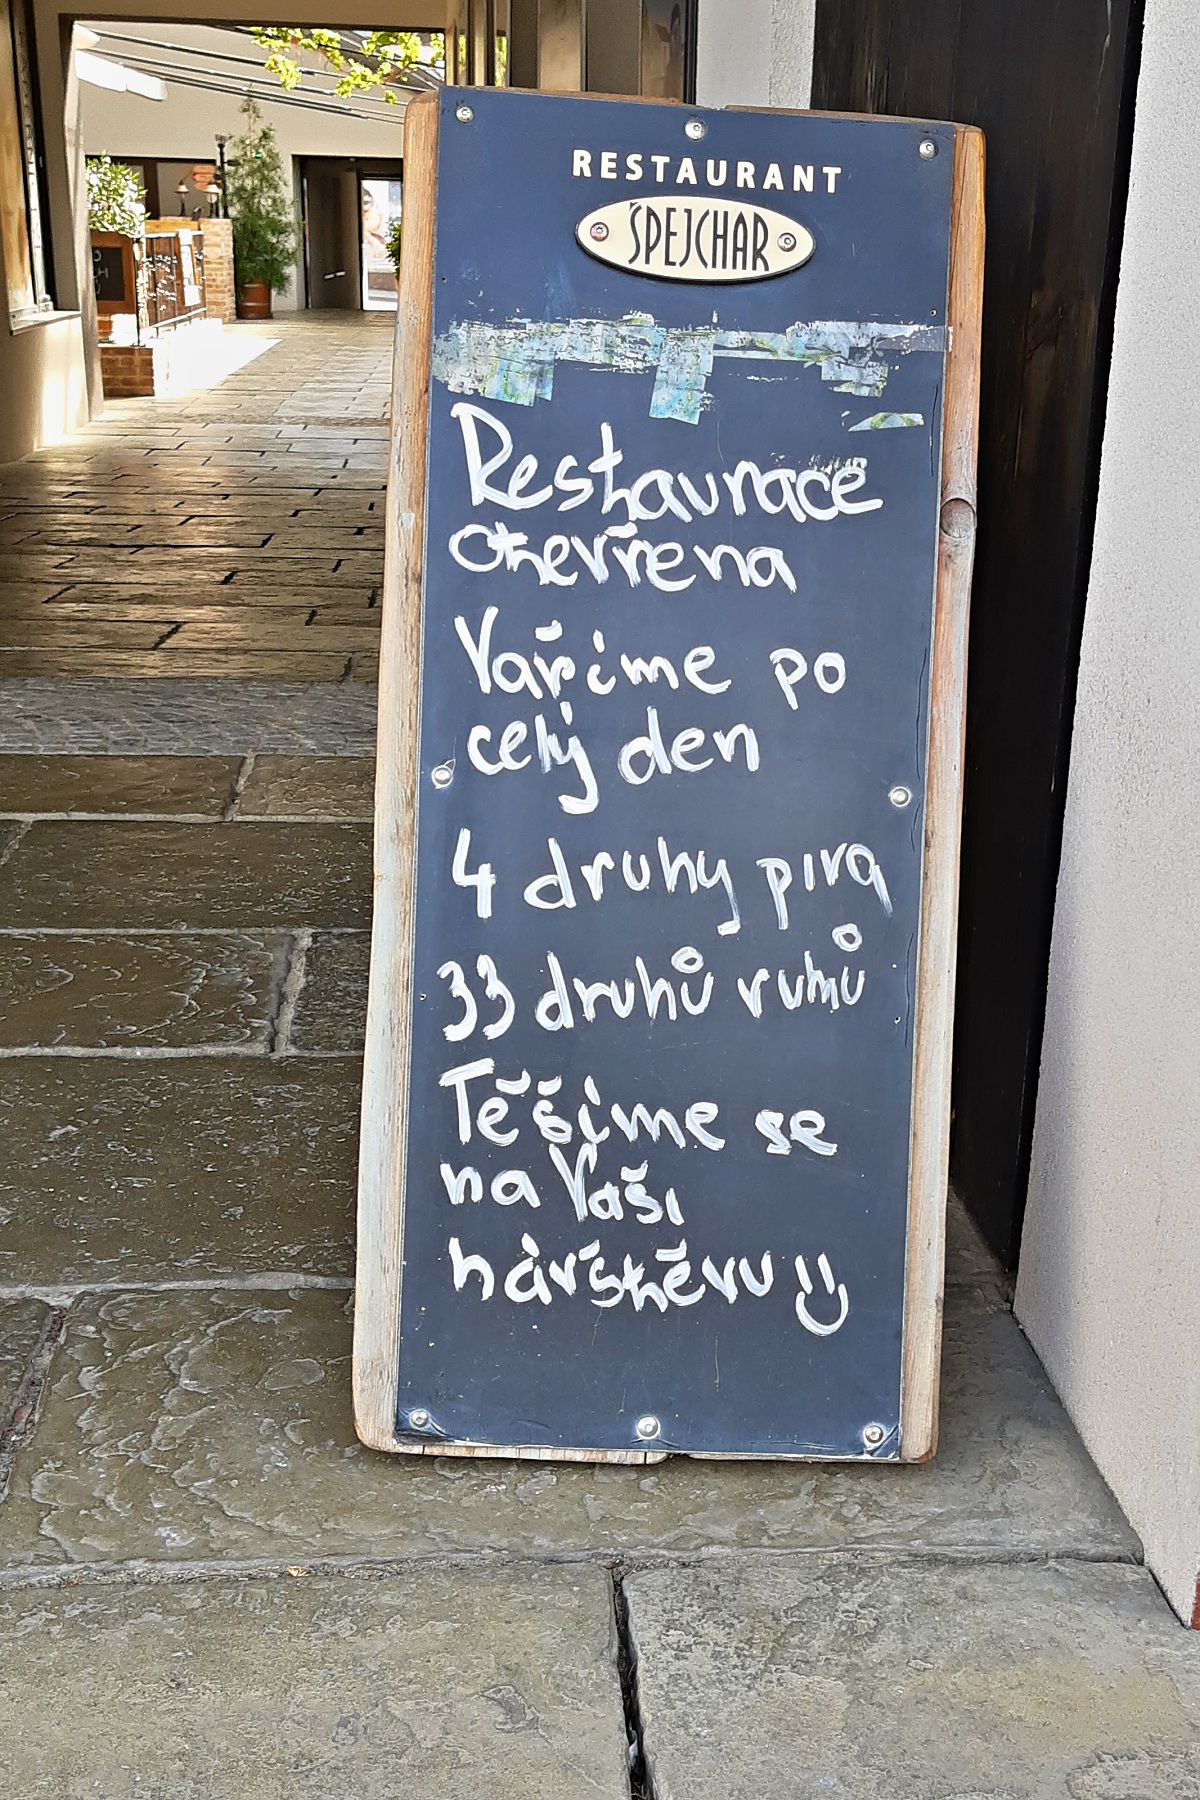 RESTAURANT
ŠPEJCHAR
Restaurace
otevřena
Vaříme po
celý den
4 druhy piva
33 druhů rumů
Těšíme se
na Vaši
návštěvu